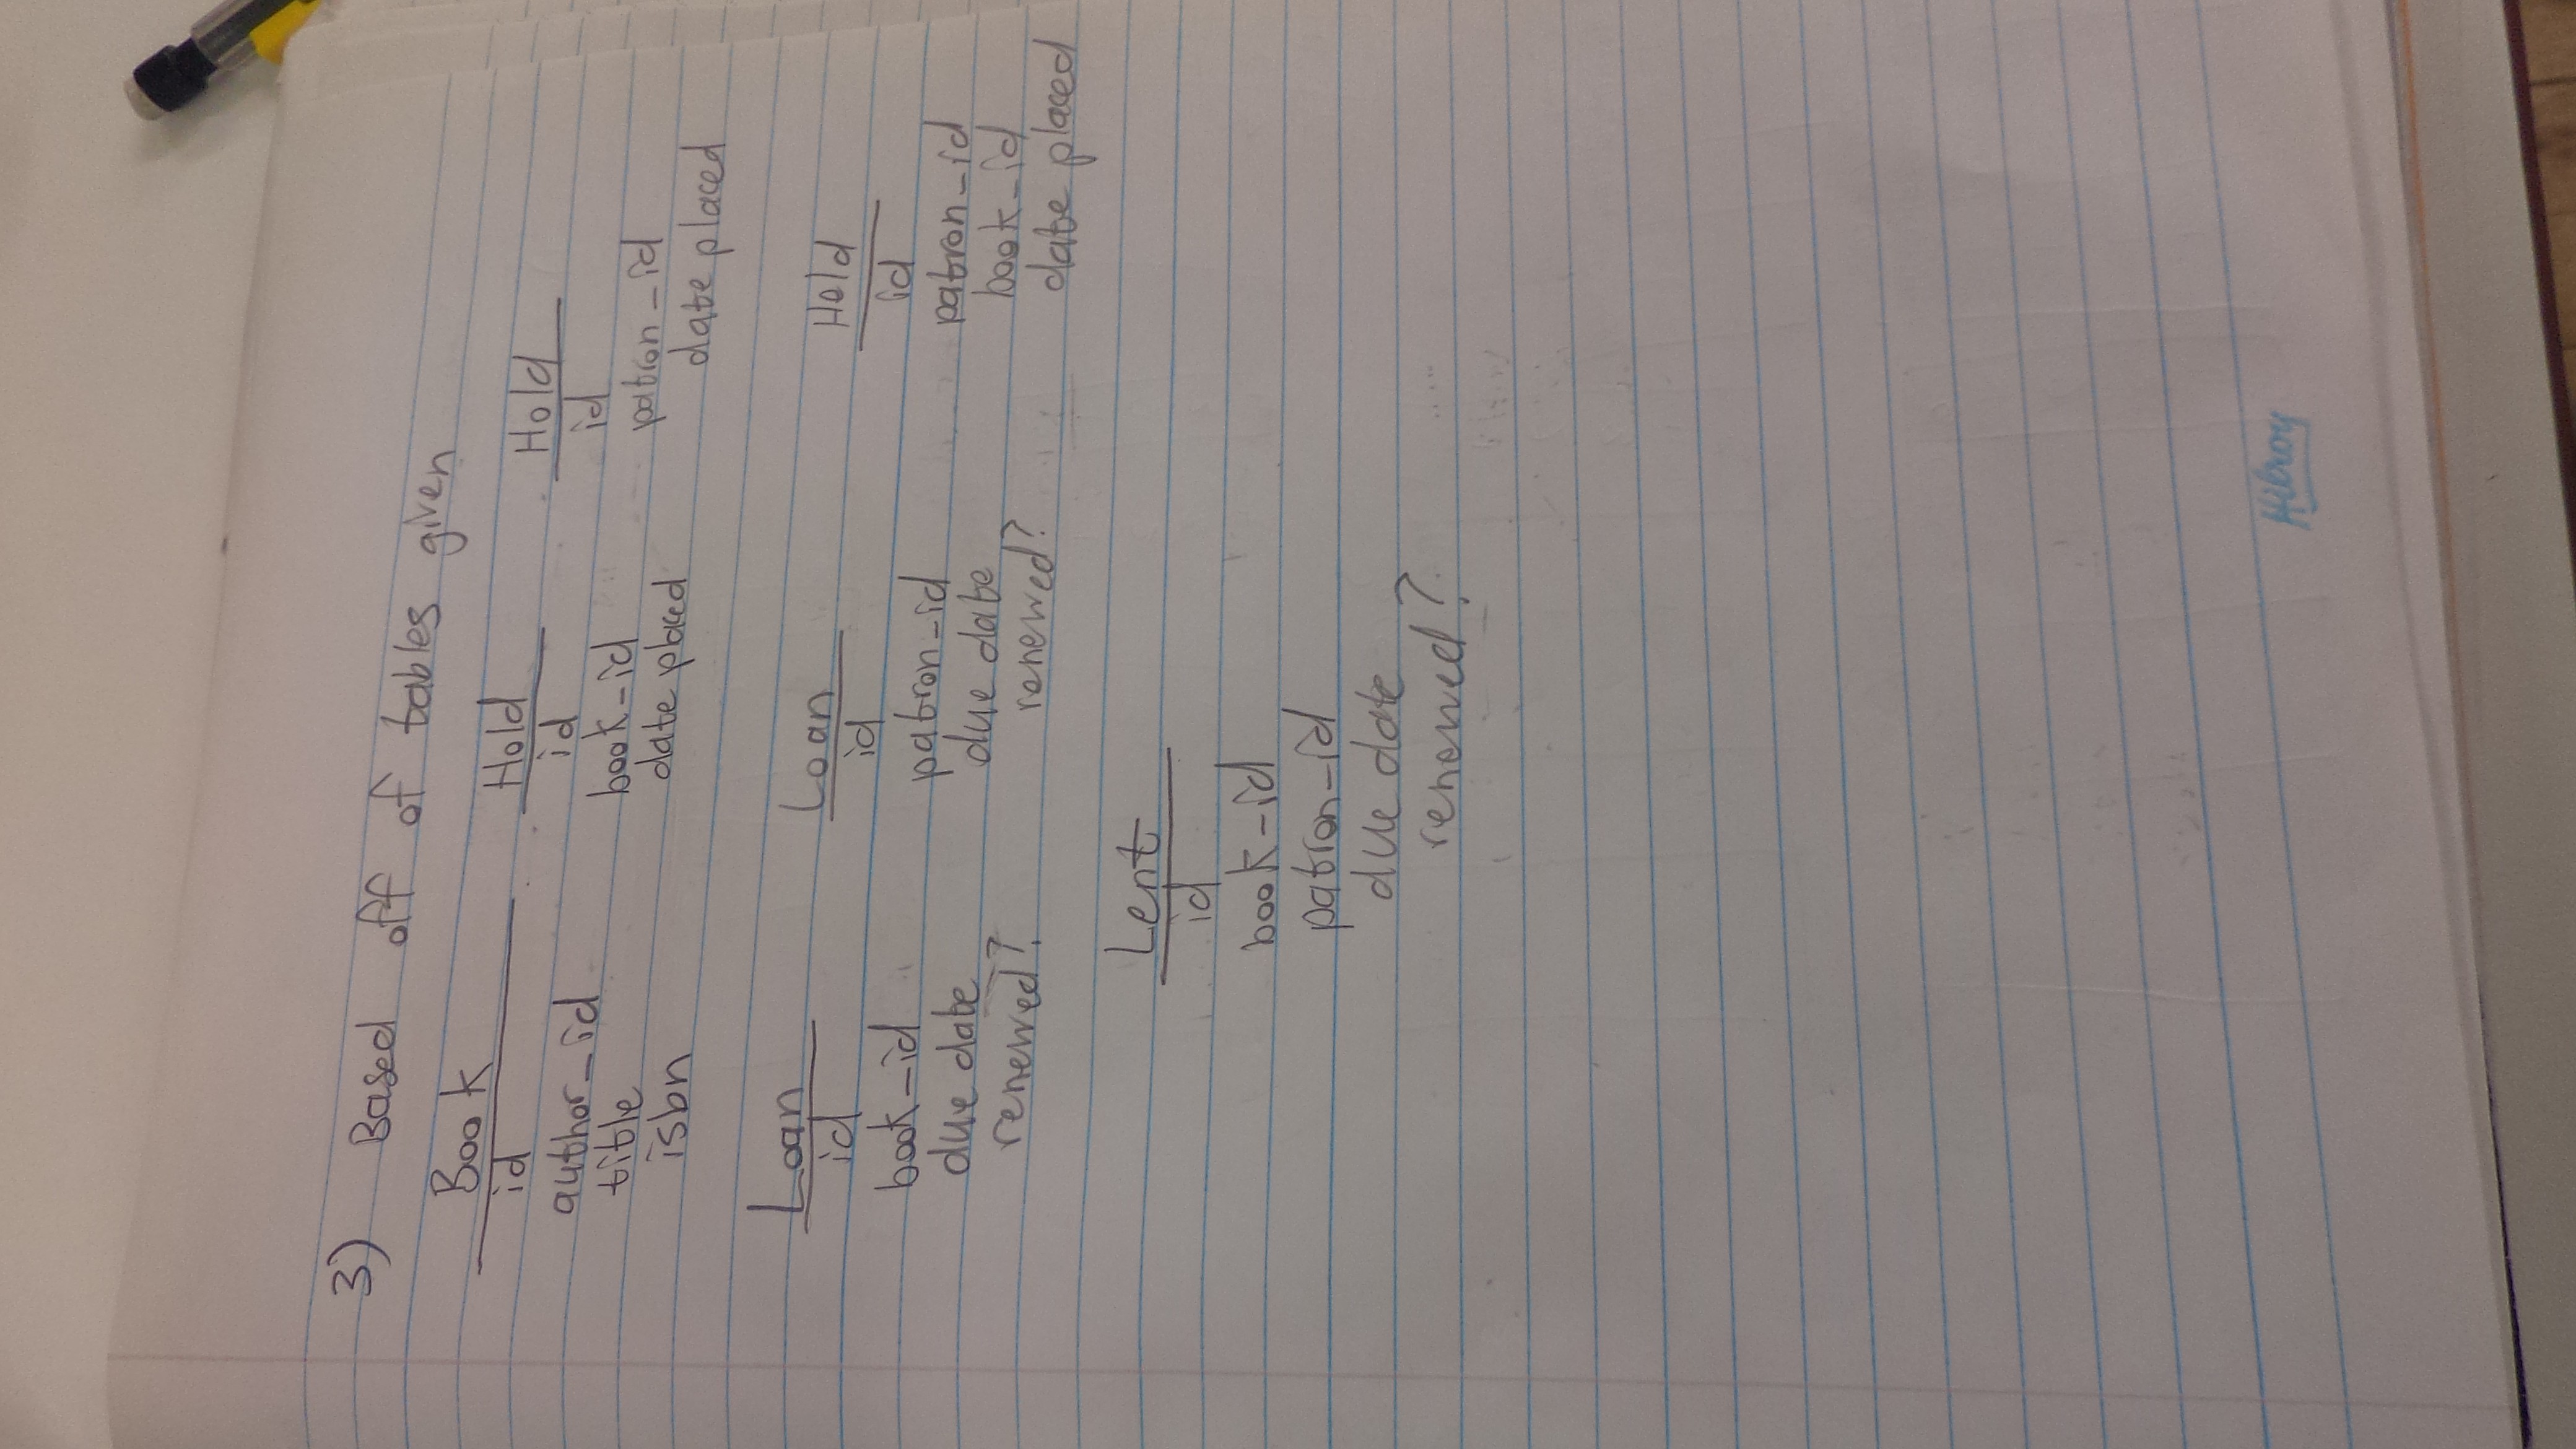 3) Based off of tables given
Book
id
author_id
title
isbn
Hold
id
book_id
date placed
Hold
id
patron_id
date placed
Loan
id
book_id
due date
renewed?
Loan
id
patron_id
due date
renewed?
Hold
id
patron_id
book_id
date placed
Lent
id
book_id
patron_id
due date
renewed?
Hilroy